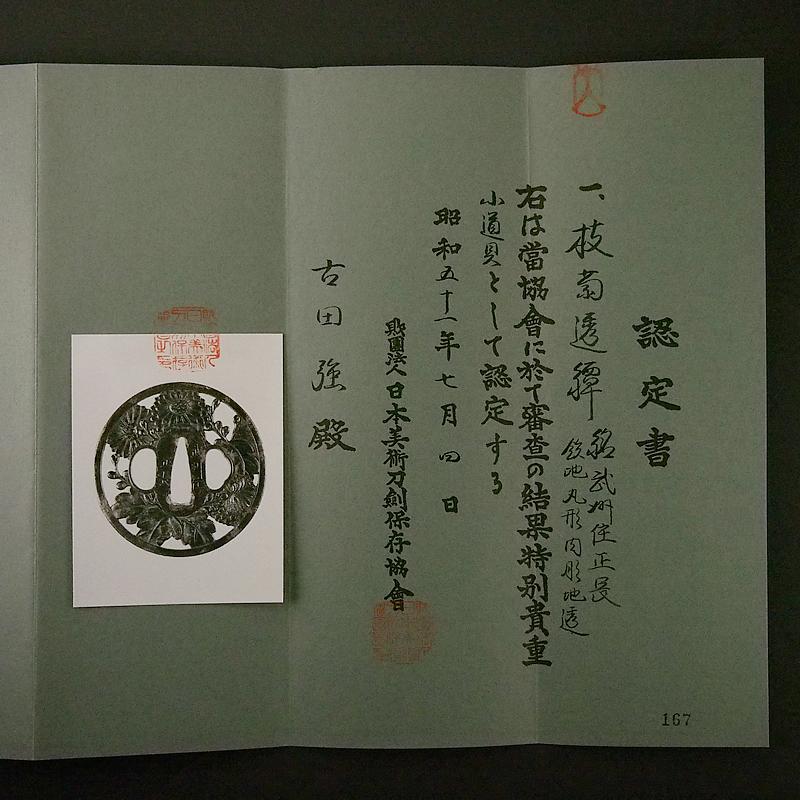 認定書
一、枝菊透鐔
銘武州住正長
鉄地丸形肉彫地透
右は當協會に於て審査の結果特別貴重
小道具として認定する
昭和五十一年七月四日
財團法人日本美術刀劍保存協會
古田強殿
167